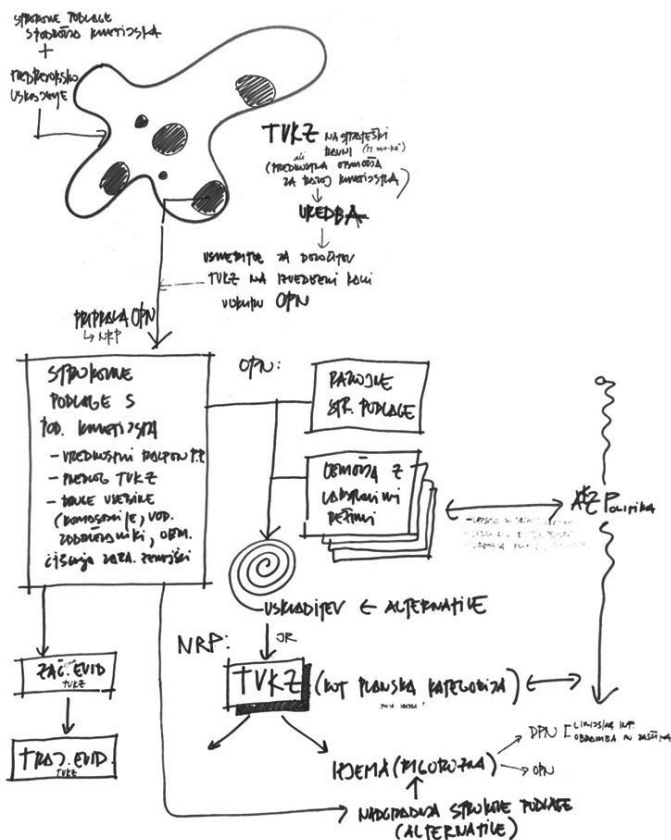 STROKOVNE PODLAGE
S PODROČJA KMETIJSTVA
+
MEDRESORSKO
USKLAJANJE
TVKZ NA STRATEŠKI
ali RAVNI
(PREDNOSTNA OBMOČJA
ZA RAZVOJ KMETIJSTVA)
UREDBA
USMERITVE ZA DOLOČITEV
TVKZ NA IZVEDBENI RAVNI
V OKVIRU OPN
PRIPRAVA OPN
↳ NRP
STROKOVNE
PODLAGE S
POD. KMETIJSTVA
- VREDNOSTNI
- PREDLOG TVKZ
- DRUGE VSEBINE
(KOMASACIJE, VOD.
ZADRŽEVALNIKI, OBM.
ZEMLJIŠČ
OPN:
RAZVOJNE
STR. PODLAGE
OBMOČJA Z
VARSTVENIMI
REŽIMI
KZ POLITIKA
USKLADITEV ← ALTERNATIVE
NRP:
TVKZ (KOT PLANSKA KATEGORIJA)
ZAČ. EVID
TVKZ
TRAJ. EVID.
TVKZ
DPN
OBRAMBA IN ZAŠČITA
IZJEMA (RIGOROZNA)
OPN
NADGRADNJA STROKOVNE PODLAGE
(ALTERNATIVE)